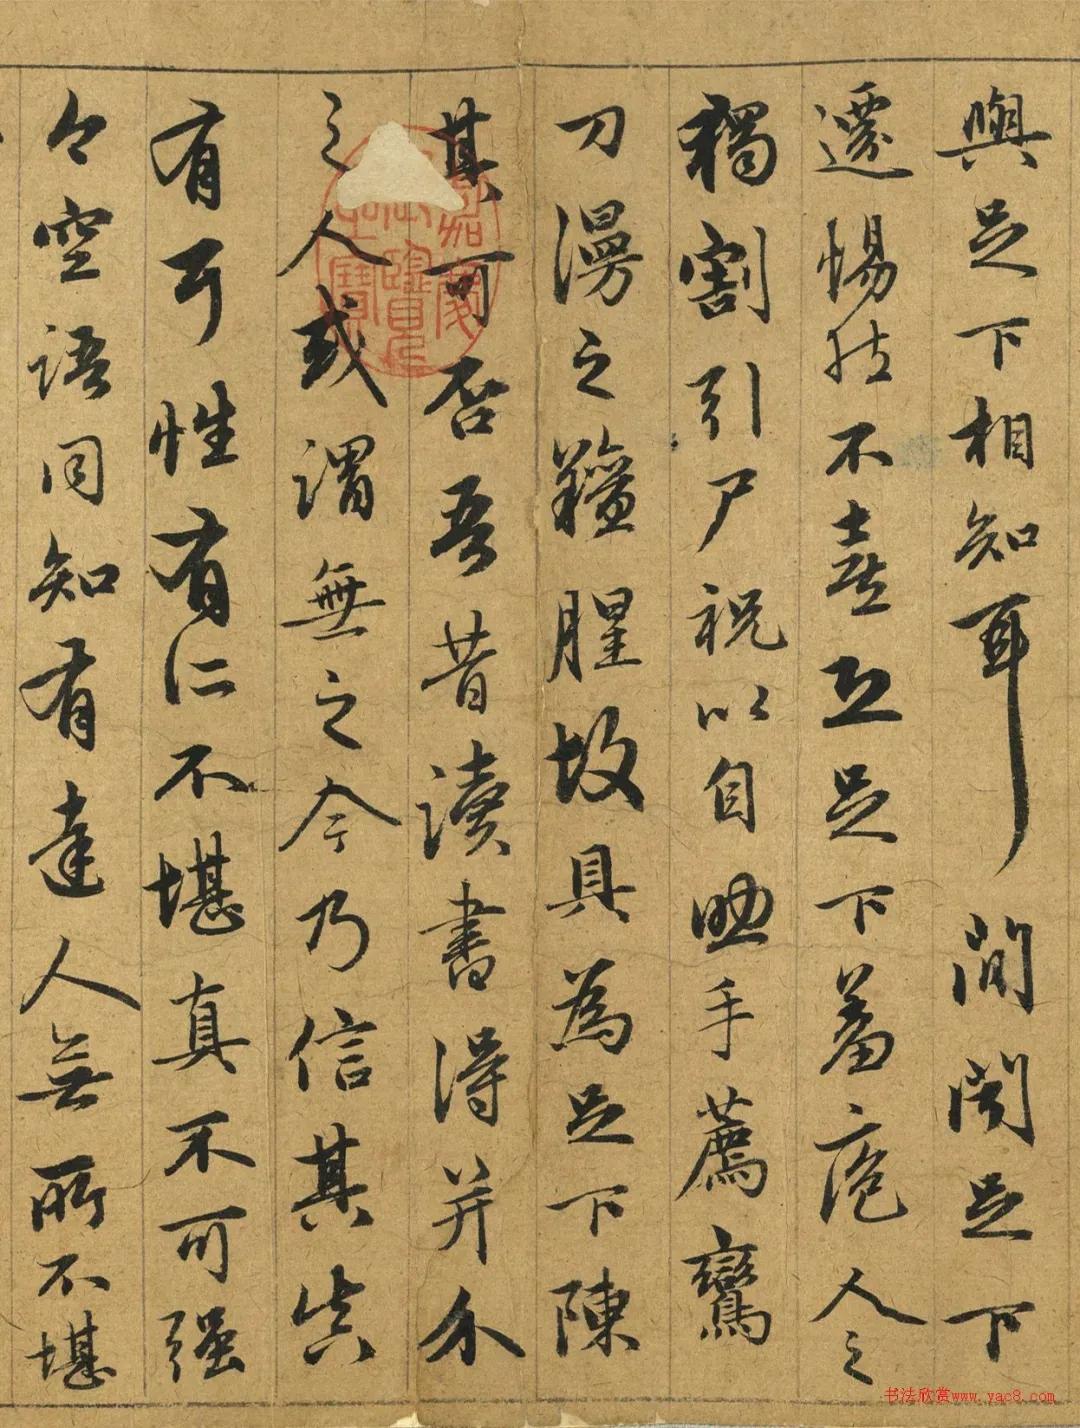 與足下相知耳間聞足下
遷惕然不喜恐足下羞庖人之
獨割引尸祝以自助手薦鸞
刀漫之羶腥故具為足下陳
其可否吾昔讀書得并介
之人或謂無之今乃信其真
有耳性有所不堪真不可强
今空語同知有達人無所不堪
嘉慶御覽之寶
书法欣赏www.yac8.com